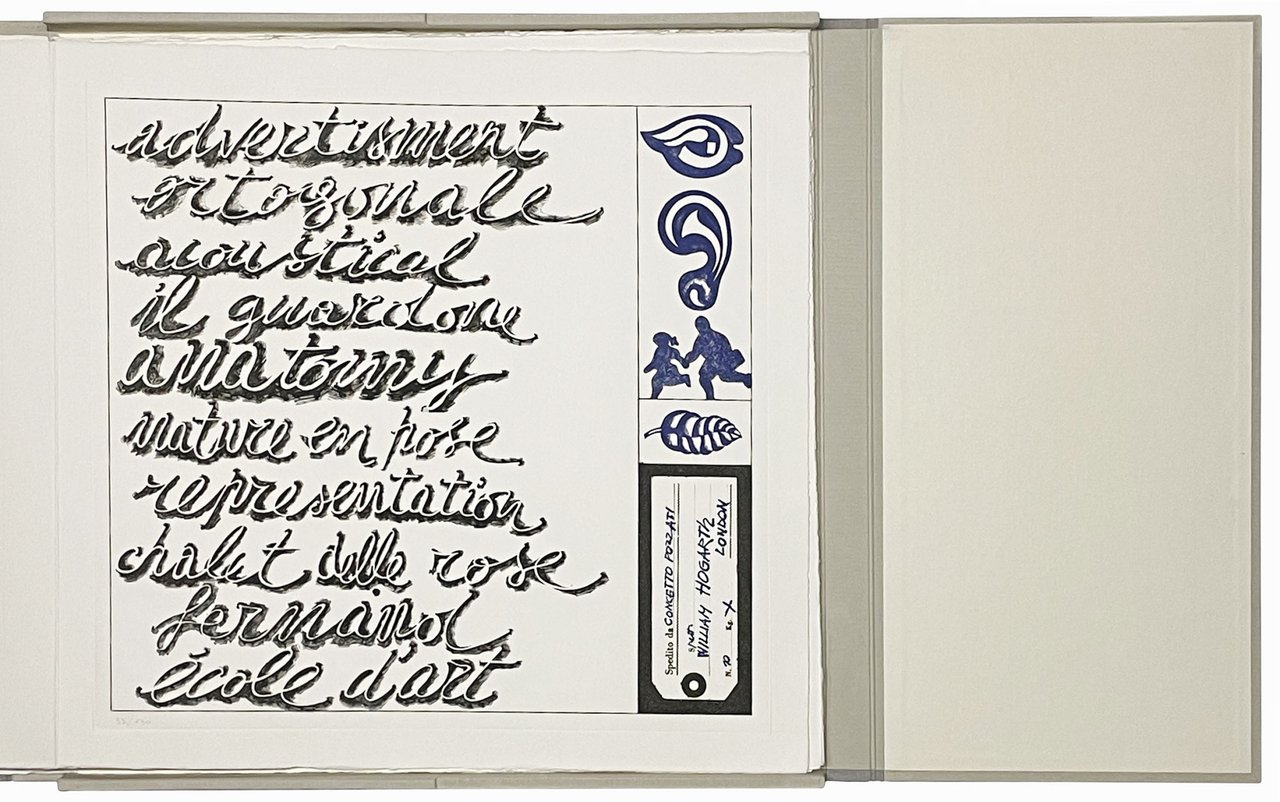 advertisment
ortogonale
acoustical
il guardone
anatomy
nature en pose
representation
chalet delle rose
fernand
école d'art
Spedito da CONCETTO POZZATI
WILLIAM HOGARTH
LONDON
N. 10 Kg. X